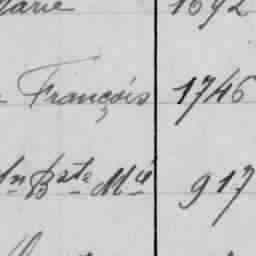 Marie 1692
François 1746
Jn Bste Mie 917